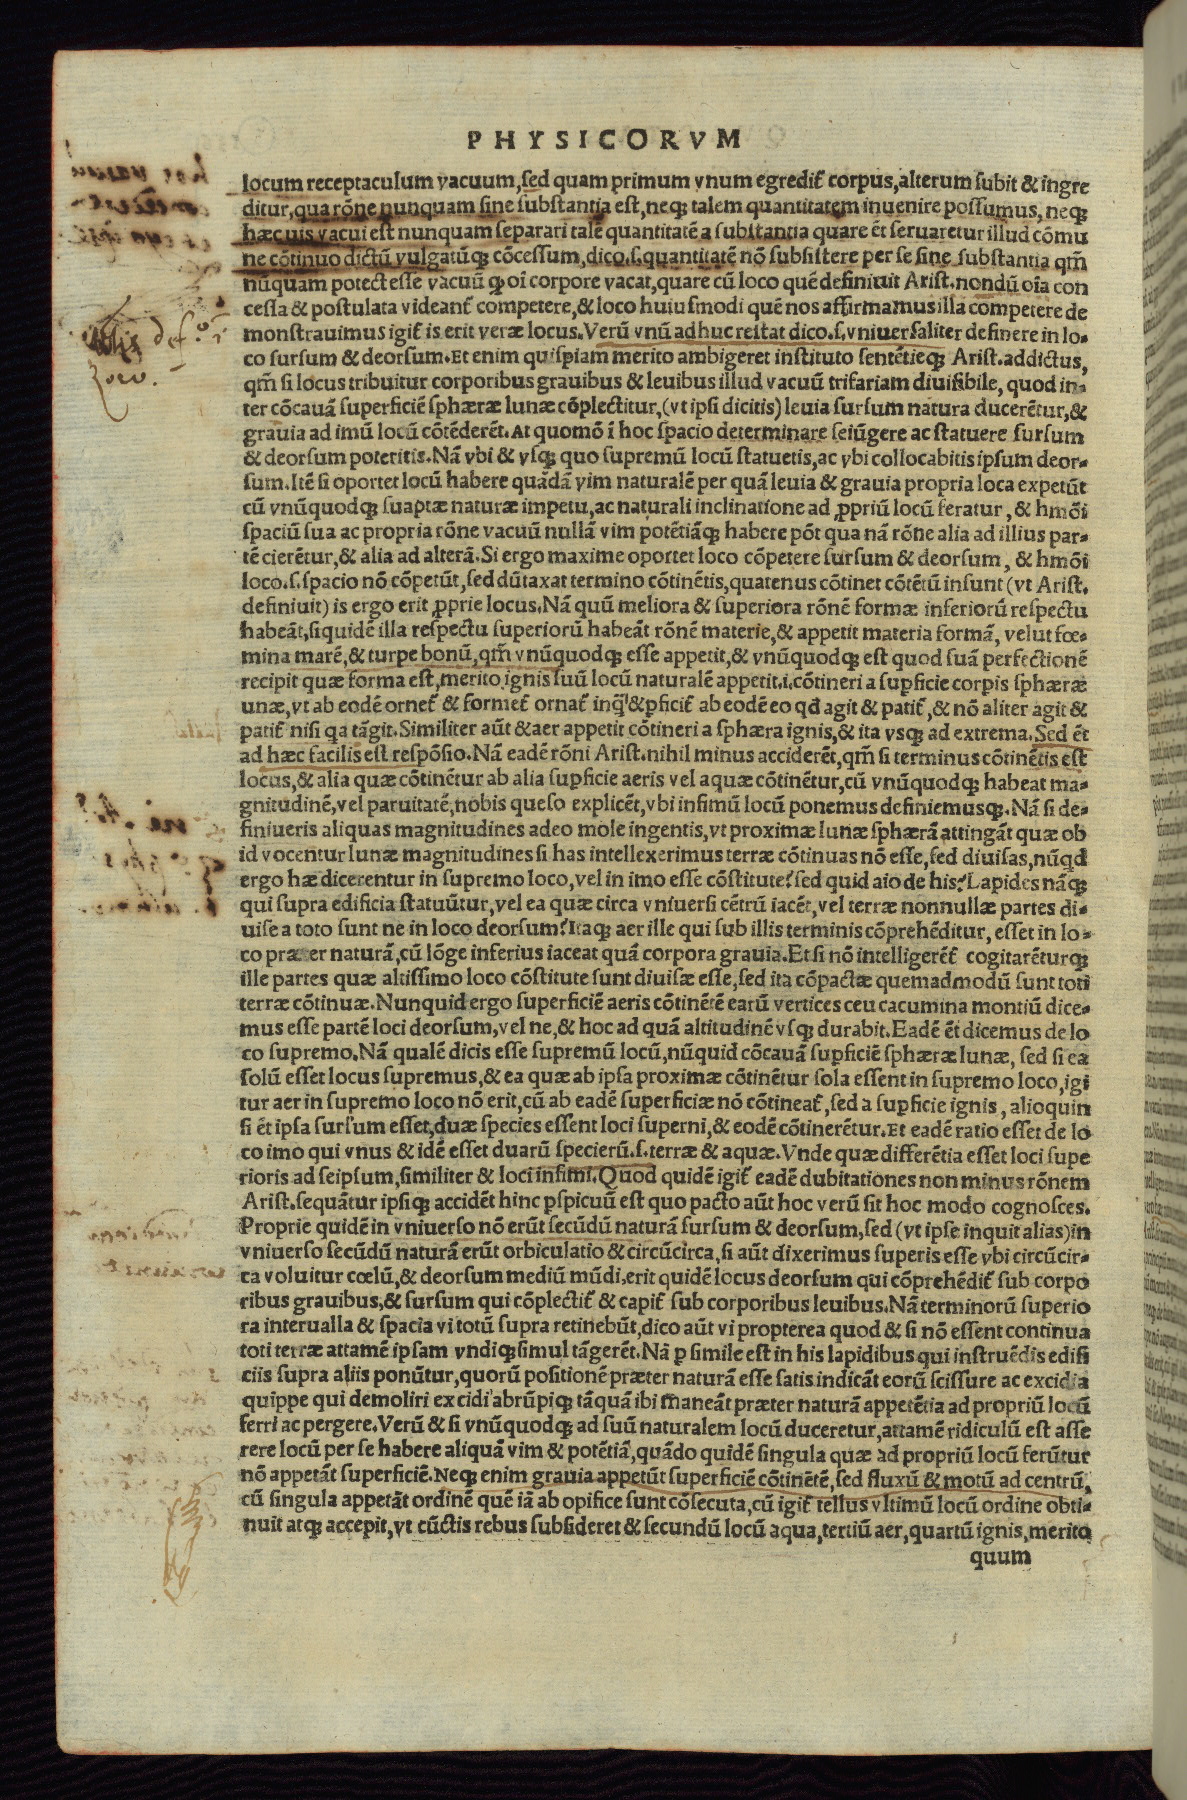 PHYSICORVM
locum receptaculum vacuum, sed quam primum vnum egredit᷑ corpus, alterum subit & ingre
ditur, qua rōne nunquam sine substantia est, neqꝫ talem quantitatem inuenire possumus, neqꝫ
hæc uis vacui est nunquam separari talē quantitatē a substantia quare ēt seruaretur illud cōmu
ne cōtinuo dictū vulgatūqꝫ cōcessum, dico .s. quantitatē nō subsistere per se sine substantia qm̄
nūquam potect esse vacuū qꝫ oī corpore vacat, quare cū loco quē definiuit Arist. nondū oīa con
cessa & postulata videant᷑ competere, & loco huiusmodi quē nos affirmamus illa competere de
monstrauimus igit᷑ is erit veræ locus. Verū vnū adhuc restat dico .s. vniuersaliter definere in lo-
co sursum & deorsum. Et enim quispiam merito ambigeret instituto sentētieqꝫ Arist. addictus,
qm̄ si locus tribuitur corporibus grauibus & leuibus illud vacuū trifariam diuisibile, quod in-
ter cōcauā superficiē sphæræ lunæ cōplectitur, (vt ipsi dicitis) leuia sursum natura ducerētur, &
grauia ad imū locū cōtēderēt. At quomō ī hoc spacio determinare seiūgere ac statuere sursum
& deorsum poteritis. Nā vbi & vsqꝫ quo supremū locū statuetis, ac vbi collocabitis ipsum deor-
sum. Itē si oportet locū habere quādā vim naturalē per quā leuia & grauia propria loca expetūt
cū vnūquodqꝫ suaptæ naturæ impetu, ac naturali inclinatione ad ꝓpriū locū feratur, & hmōi
spaciū sua ac propria rōne vacuū nullā vim potētiāqꝫ habere pōt qua nā rōne alia ad illius par-
tē cierētur, & alia ad alterā. Si ergo maxime oportet loco cōpetere sursum & deorsum, & hmōi
loco .s. spacio nō cōpetūt, sed dūtaxat termino cōtinētis, quatenus cōtinet cōtētū insunt (vt Arist.
definiuit) is ergo erit ꝓprie locus. Nā quū meliora & superiora rōnē formæ inferiorū respectu
habeāt, siquidē illa respectu superiorū habeāt rōnē materie, & appetit materia formā, velut fœ-
mina marē, & turpe bonū, qm̄ vnūquodqꝫ esse appetit, & vnūquodqꝫ est quod suā perfectionē
recipit quæ forma est, merito ignis suū locū naturalē appetit .i. cōtineri a suꝑficie corꝑis sphæræ
unæ, vt ab eodē ornet᷑ & formet᷑ ornat᷑ inq̄ & ꝑficit᷑ ab eodē eo qd̄ agit & patit᷑, & nō aliter agit &
patit᷑ nisi qa tāgit. Similiter aūt & aer appetit cōtineri a sphæra ignis, & ita vsqꝫ ad extrema. Sed ēt
ad hæc facilis est respōsio. Nā eadē rōni Arist. nihil minus accideret, qm̄ si terminus cōtinētis est
locus, & alia quæ cōtinētur ab alia suꝑficie aeris vel aquæ cōtinētur, cū vnūquodqꝫ habeat ma-
gnitudinē, vel paruitatē, nobis queso explicēt, vbi infimū locū ponemus definiemusqꝫ. Nā si de-
finiueris aliquas magnitudines adeo mole ingentis, vt proximæ lunæ sphærā attingāt quæ ob
id vocentur lunæ magnitudines si has intellexerimus terræ cōtinuas nō esse, sed diuisas, nūqd̄
ergo hæ dicerentur in supremo loco, vel in imo esse cōstitute? sed quid aio de his? Lapides nāqꝫ
qui supra edificia statuūtur, vel ea quæ circa vniuersi cētrū iacēt, vel terræ nonnullæ partes di-
uise a toto sunt ne in loco deorsum? Itaqꝫ aer ille qui sub illis terminis cōprehēditur, esset in lo-
co præter naturā, cū lōge inferius iaceat quā corpora grauia. Et si nō intelligerēt᷑ cogitarēturqꝫ
ille partes quæ altissimo loco cōstitute sunt diuisæ esse, sed ita cōpactæ quemadmodū sunt toti
terræ cōtinuæ. Nunquid ergo superficiē aeris cōtinētē earū vertices ceu cacumina montiū dice-
mus esse partē loci deorsum, vel ne, & hoc ad quā altitudinē vsqꝫ durabit. Eadē ēt dicemus de lo
co supremo. Nā qualē dicis esse supremū locū, nūquid cōcauā suꝑficiē sphæræ lunæ, sed si ea
solū esset locus supremus, & ea quæ ab ipsa proximæ cōtinētur sola essent in supremo loco, igi
tur aer in supremo loco nō erit, cū ab eadē superficiæ nō cōtineat᷑, sed a suꝑficie ignis, alioquin
si ēt ipsa sursum esset, duæ species essent loci superni, & eodē cōtinerētur. Et eadē ratio esset de lo
co imo qui vnus & idē esset duarū specierū .s. terræ & aquæ. Vnde quæ differētia esset loci supe
rioris ad seipsum, similiter & loci infimi. Quod quidē igit᷑ eadē dubitationes non minus rōnem
Arist. sequātur ipsiqꝫ accidēt hinc ꝑspicuū est quo pacto aūt hoc verū sit hoc modo cognosces.
Proprie quidē in vniuerso nō erūt secūdū naturā sursum & deorsum, sed (vt ipse inquit alias) in
vniuerso secūdū naturā erūt orbiculatio & circūcirca, si aūt dixerimus superis esse vbi circūcir-
ca voluitur cœlū, & deorsum mediū mūdi, erit quidē locus deorsum qui cōprehēdit᷑ sub corpo
ribus grauibus, & sursum qui cōplectit᷑ & capit᷑ sub corporibus leuibus. Nā terminorū superio
ra interualla & spacia vi totū supra retinebūt, dico aūt vi propterea quod & si nō essent continua
toti terræ attamē ipsam vndiqꝫ simul tāgerēt. Nā ꝑ simile est in his lapidibus qui instruēdis edifi
ciis supra aliis ponūtur, quorū positionē præter naturā esse satis indicāt eorū scissure ac excidia
quippe qui demoliri excidi abrūpiqꝫ tāquā ibi maneāt præter naturā appetētia ad propriū locū
ferri ac pergere. Verū & si vnūquodqꝫ ad suū naturalem locū duceretur, attamē ridiculū est asse
rere locū per se habere aliquā vim & potētiā, quādo quidē singula quæ ad propriū locū ferūtur
nō appetāt superficiē. Neqꝫ enim grauia appetūt superficiē cōtinētē, sed fluxū & motū ad centrū,
cū singula appetāt ordinē quē iā ab opifice sunt cōsecuta, cū igit᷑ tellus vltimū locū ordine obti-
nuit atqꝫ accepit, vt cūctis rebus subsideret & secundū locū aqua, tertiū aer, quartū ignis, merito
quum